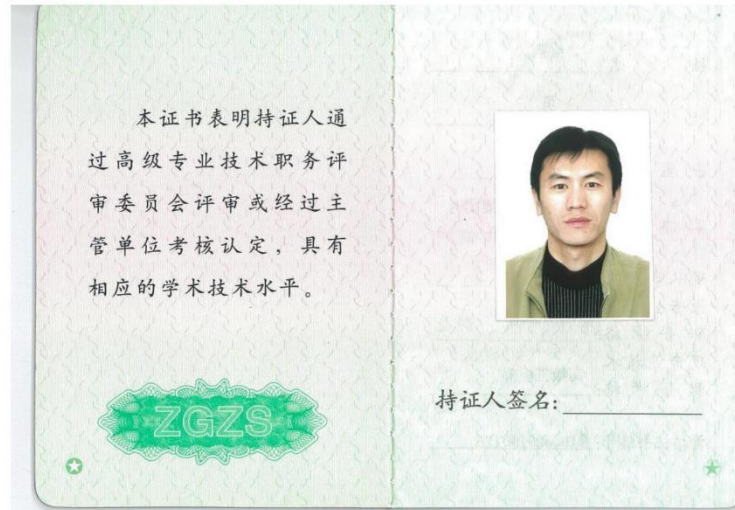 本证书表明持证人通
过高级专业技术职务评
审委员会评审或经过主
管单位考核认定，具有
相应的学术技术水平。
ZGZS
持证人签名：